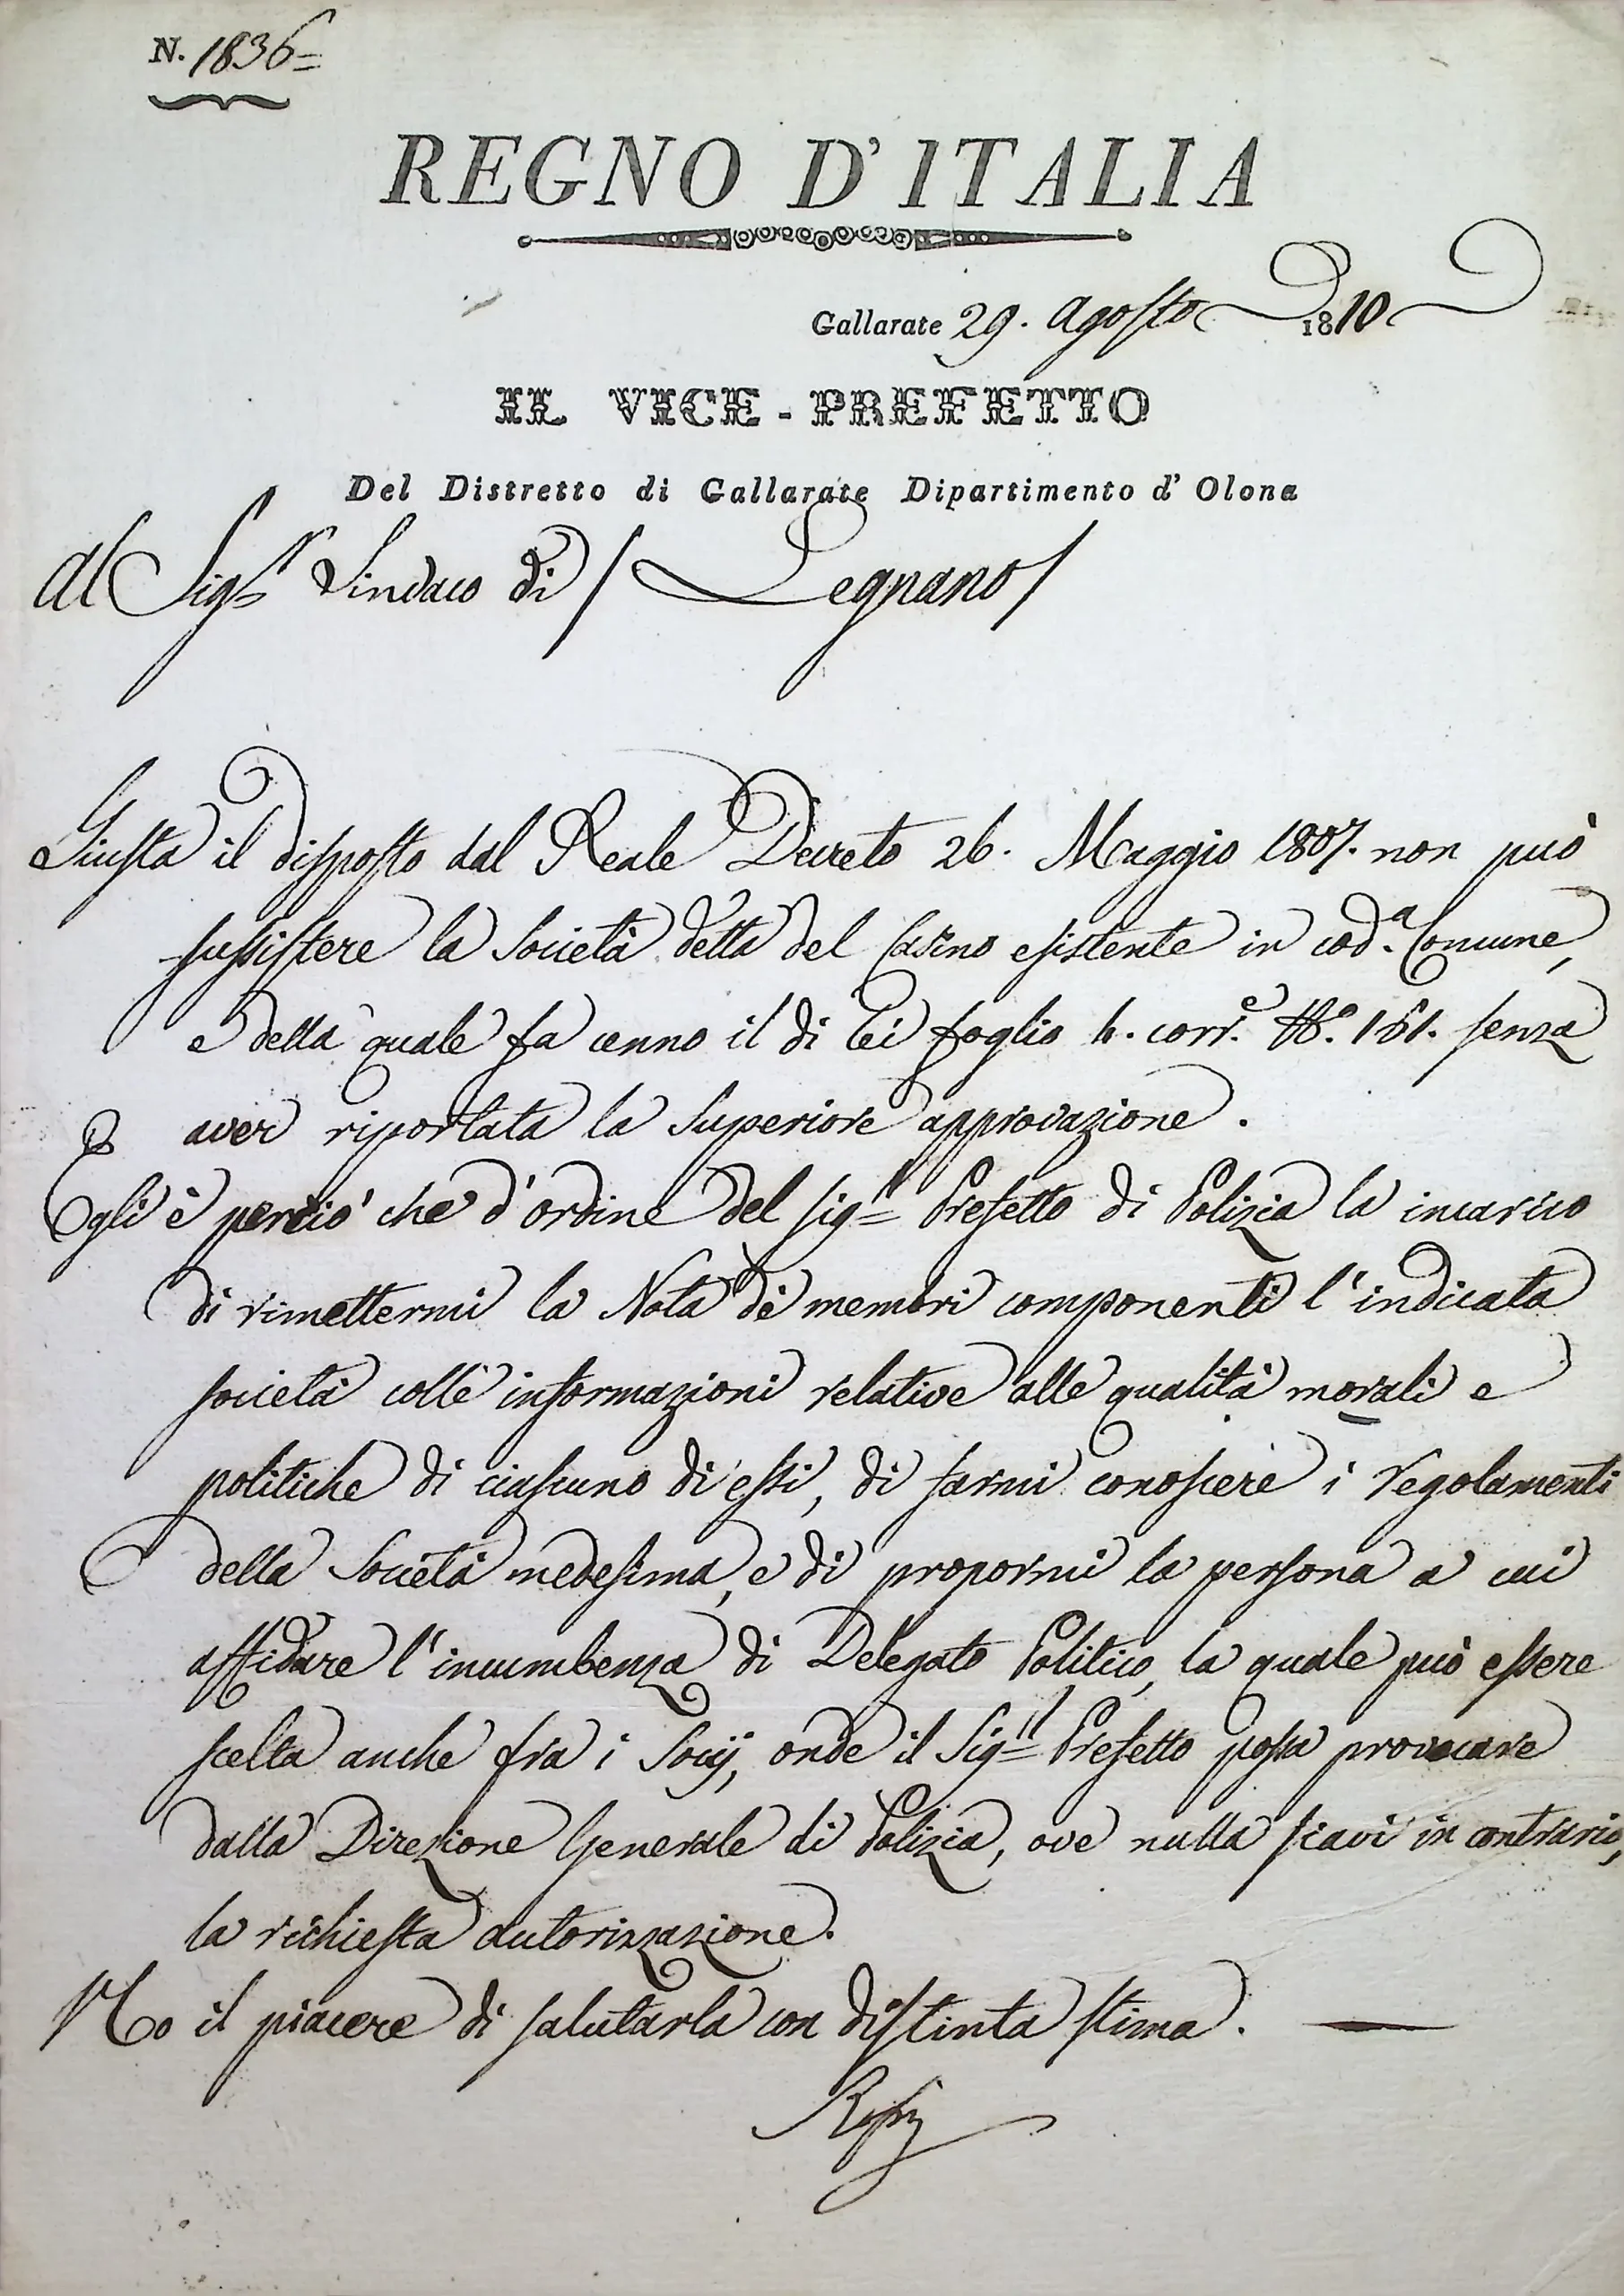 N. 1836=
REGNO D'ITALIA
Gallarate 29. Agosto 1810
IL VICE-PREFETTO
Del Distretto di Gallarate Dipartimento d'Olona
Al Sig.r Sindaco di Legnano
Giusta il disposto dal Reale Decreto 26. Maggio 1807. non può
sussistere la Società detta del Casino esistente in cod.a Comune,
e della quale fa cenno il di Lei foglio 4. corr.e N.o 181. senza
aver riportata la Superiore approvazione.
Egli è perciò che d'ordine del Sig.r Prefetto di Polizia la incarico
di rimettermi la Nota de' membri componenti l'indicata
società colle informazioni relative alle qualità morali e
politiche di ciascuno di essi, di farmi conoscere i regolamenti
della Società medesima, e di propormi la persona a cui
affidare l'incumbenza di Delegato Politico, la quale può essere
scelta anche fra i Socij, onde il Sig.r Prefetto possa provocare
dalla Direzione Generale di Polizia, ove nulla siavi in contrario,
la richiesta autorizzazione.
Ho il piacere di salutarla con distinta stima.